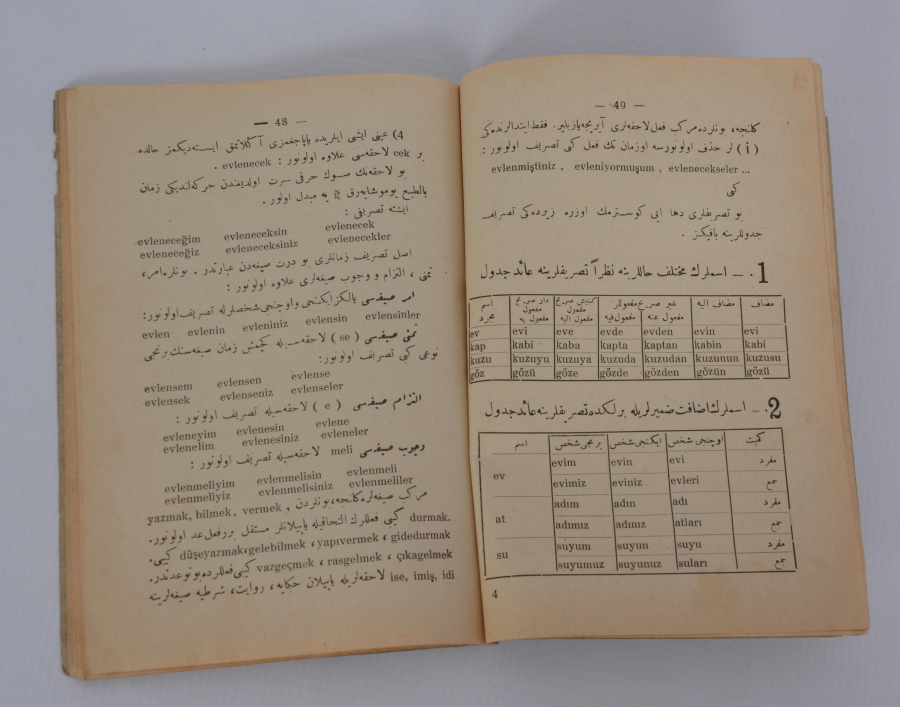 — 48 —
4) عینی ایشی ایلریده یاپاجغمزی آكلاتمق ایسته‌دیكمز حالده
بر cek لاحقه‌سی علاوه اولونور : evlenecek .
بو لاحقه‌نك صوك حرفی سرت اولدیغندن حركه‌لندیكی زمان
بالطبع یوموشایه‌رق ğ یه مبدل اولور .
ایشته تصریفی :
evleneceğim evleneceksin evlenecek
evleneceğiz evleneceksiniz evlenecekler
اصل تصریف زمانلری بو درت صیغه‌دن عبارتدر . بونلره امر،
تمنی ، التزام و وجوب صیغه‌لری علاوه اولونور :
امر صیغه‌سی یالكز ایكنجی واوچنجی شخصلرله تصریف اولونور:
evlen evlenin evleniniz evlensin evlensinler
تمنی صیغه‌سی ( se ) لاحقه‌سیله كچمش زمان صیغه‌سنك برنجی
نوعی كبی تصریف اولونور:
evlensem evlensen evlense
evlensek evlenseniz evlenseler
التزام صیغه‌سی ( e ) لاحقه‌سیله تصریف اولونور :
evleneyim evlenesin evlene
evlenelim evlenesiniz evleneler
وجوب صیغه‌سی meli لاحقه‌سیله تصریف اولونور :
evlenmeliyim evlenmelisin evlenmeli
evlenmeliyiz evlenmelisiniz evlenmeliler
مركب صیغه‌لره كلنجه، بونلردن yazmak, bilmek, vermek ,
durmak. كبی فعللرك التحاقیله یاپیلانلر مستقل بر فعل عد اولونور.
düşeyazmak، gelebilmek ، yapıvermek ، gidedurmak كبی.
vazgeçmek ، rasgelmek ، çıkagelmek كبی فعللرده بو نوعدندر.
ise, imiş, idi لاحقه‌لریله یاپیلان حكایه، روایت، شرطیه صیغه‌لرینه
— 49 —
كلنجه، بونلرده مركب فعل لاحقه‌لری آیریجه یازیلیر. فقط ابتدالرنده‌كی
( i ) لر حذف اولونورسه اوزمان تك فعل كبی تصریف اولونور :
evlenmiştiniz , evleniyormuşum , evlenecekseler ...
كبی
بو تصریفلری دها ایی كوسترمك اوزره زیرده‌كی تصریف
جدوللرینه باقیكز .
1. — اسملرك مختلف حاللرینه نظراً تصریفلرینه عائد جدول
اسم مجرد مفعول یه مفعول الیه مفعول فیه مفعول عنه مضاف الیه مضاف
ev evi eve evde evden evin evi
kap kabi kaba kapta kaptan kabin kabi
kuzu kuzuyu kuzuya kuzuda kuzudan kuzunun kuzusu
göz gözü göze gözde gözden gözün gözü
2. — اسملرك اضافت ضمیرلریله برلكده تصریفلرینه عائد جدول
اسم برنجی شخص ایكنجی شخص اوچنجی شخص كمیت
ev evim evin evi مفرد
evimiz eviniz evleri جمع
at adım adın adı مفرد
adımız adınız atları جمع
su suyum suyun suyu مفرد
suyumuz suyunuz suları جمع
4